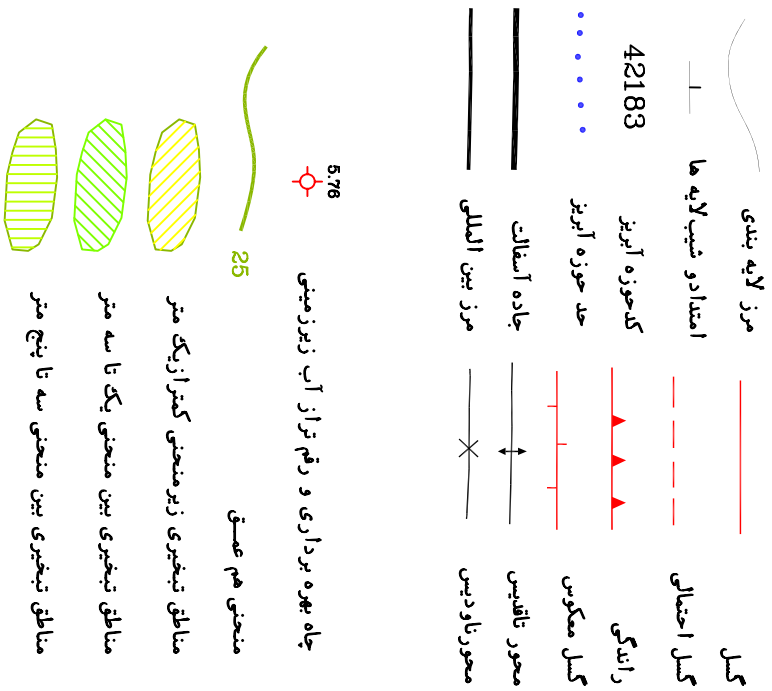 مرز لایه بندی
امتداد و شیب لایه ها
42183
کدحوزه آبریز
حد حوزه آبریز
جاده آسفالت
مرز بین المللی
گسل
گسل احتمالی
راندگی
گسل معکوس
محور تاقدیس
محورناودیس
5.76
چاه بهره برداری و رقم تراز آب زیرزمینی
25
منحنی هم عمق
مناطق تبخیری زیرمنحنی کمترازیک متر
مناطق تبخیری بین منحنی یک تا سه متر
مناطق تبخیری بین منحنی سه تا پنج متر